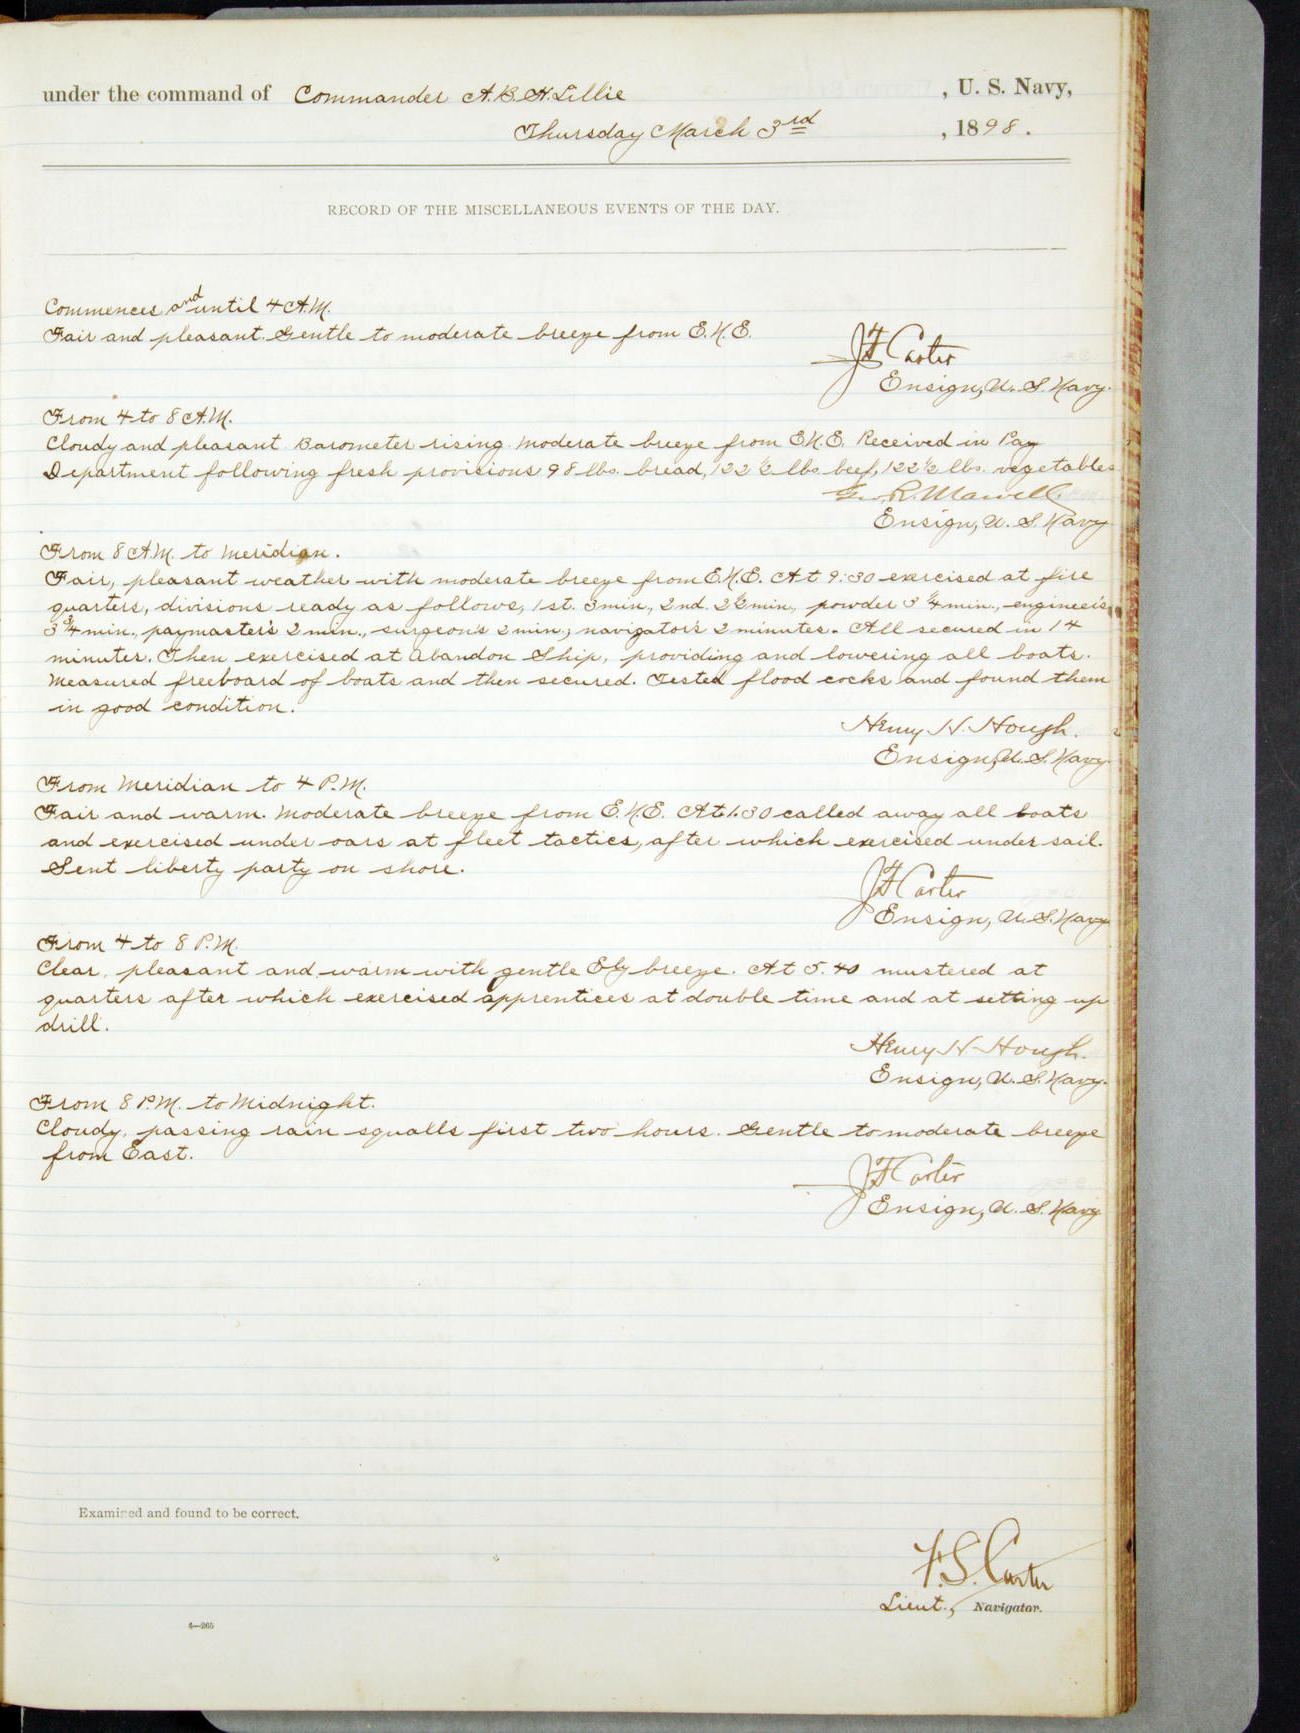 under the command of Commander A.B.H. Lillie , U. S. Navy,
Thursday March 3rd , 1898 .
RECORD OF THE MISCELLANEOUS EVENTS OF THE DAY.
Commences and until 4 A.M.
Fair and pleasant. Gentle to moderate breeze from E.N.E.
J F Carter
Ensign, U. S. Navy.
From 4 to 8 A.M.
Cloudy and pleasant. Barometer rising. Moderate breeze from E.N.E. Received in Pay
Department following fresh provisions 98 lbs. bread, 122 1/2 lbs. beef, 122 1/2 lbs. vegetables
Geo. R. Marvell
Ensign, U. S. Navy
From 8 A.M. to Meridian.
Fair, pleasant weather with moderate breeze from E.N.E. At 9:30 exercised at fire
quarters, divisions ready as follows, 1st. 3 min., 2nd. 2 1/2 min., powder 3 1/4 min., engineer's
3 3/4 min., paymaster's 2 min., surgeon's 2 min., navigator's 2 minutes. All secured in 14
minutes. Then exercised at Abandon Ship, providing and lowering all boats.
Measured freeboard of boats and then secured. Tested flood cocks and found them
in good condition.
Henry H. Hough.
Ensign, U. S. Navy.
From Meridian to 4 P.M.
Fair and warm. Moderate breeze from E.N.E. At 1:30 called away all boats
and exercised under oars at fleet tactics, after which exercised under sail.
Sent liberty party on shore.
J F Carter
Ensign, U. S. Navy
From 4 to 8 P.M.
Clear, pleasant and warm with gentle Ely breeze. At 5.40 mustered at
quarters after which exercised apprentices at double time and at setting up
drill.
Henry H. Hough.
Ensign, U. S. Navy.
From 8 P.M. to Midnight.
Cloudy, passing rain squalls first two hours. Gentle to moderate breeze
from East.
J F Carter
Ensign, U. S. Navy
Examined and found to be correct.
F. S. Carter
Lieut., Navigator.
4—265